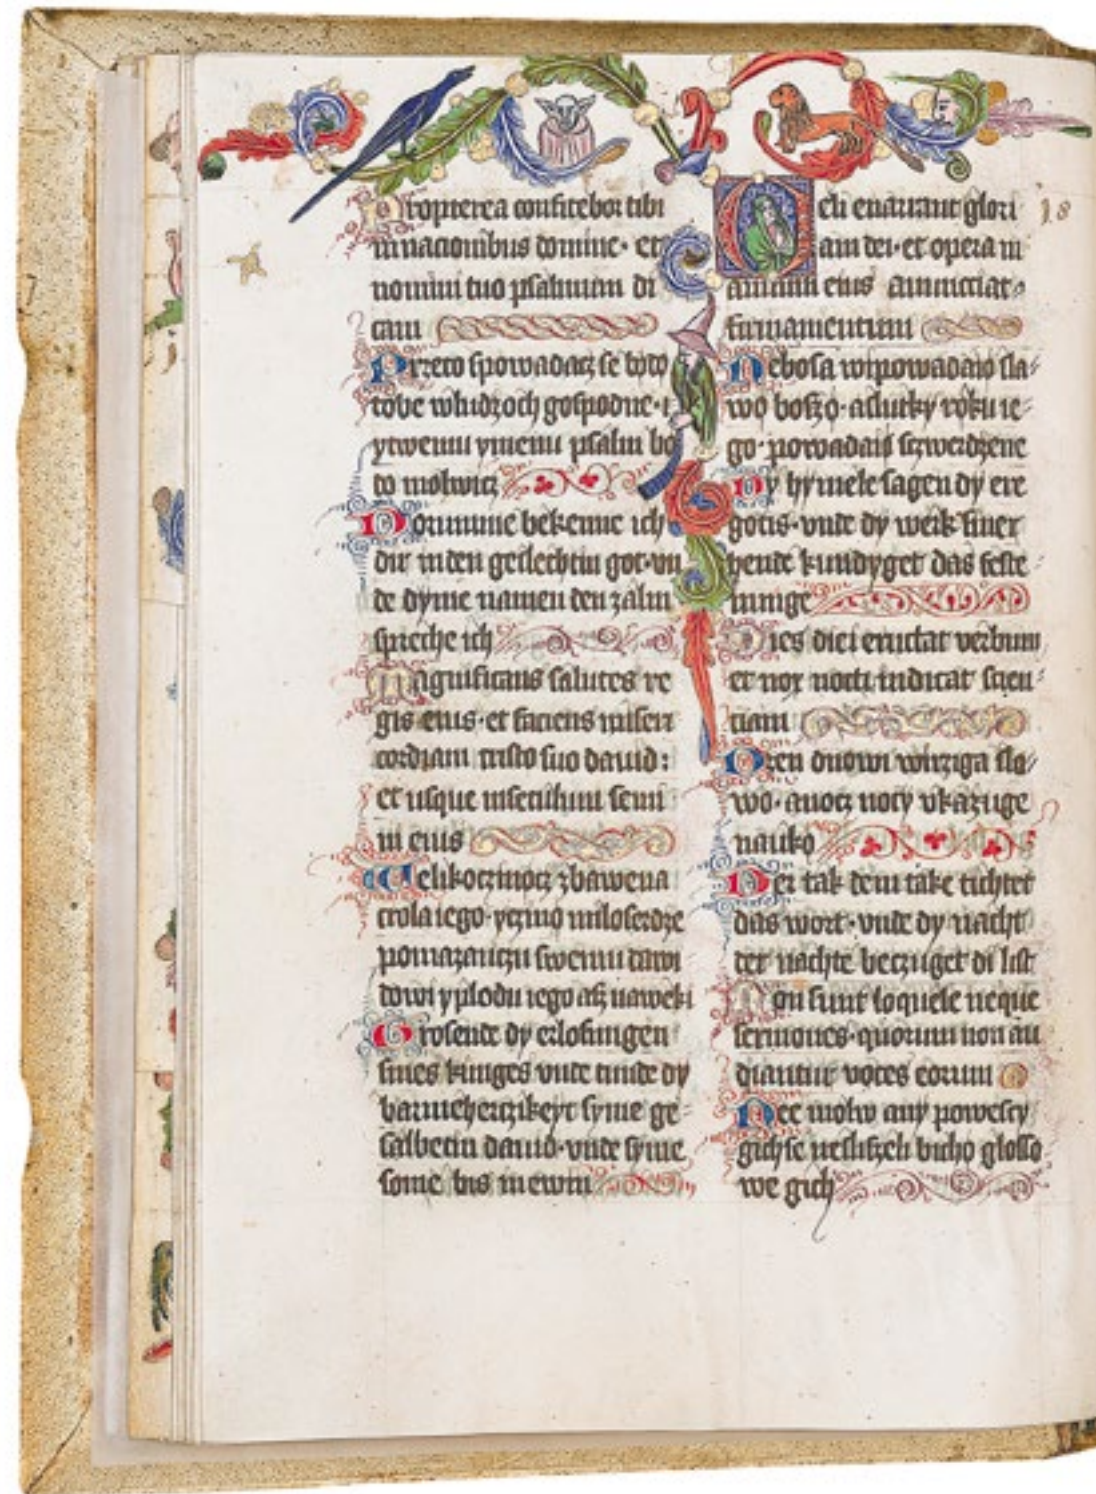 Propterea confitebor tibi
in nacionibus domine· et
nomini tuo psalmum di
cam
Przeto spowadacz se bodo
tobe wludzoch gospodne· i
ytwemu ymenu psalm bo
do molwicz
Dorumme bekenne ich
dir in den geslechtin got· vn
de dyme namen den zalm
spreche ich
Magnificans salutes re
gis eius· et faciens miseri
cordiam cristo suo dauid:
et usque in seculum semi
ni eius
Welikoczinocz zbawena
crola iego· yczino miloserdze
pomazanczu swemu dawi
dowi yplodu iego asz naweki
Grosende dy erlosungen
sines kunges vnde tunde dy
barmeherczikeyt syme ge-
salbetin dauid· vnde syme
some bis in ewin
Celi enarrant glori
am dei· et opera m
anuum eius annuncciat
firmamentum
18
Nebosa wipowadaio sla-
wo boszo· a slutky roku ie-
go· powadaio sczwerdzene
Dy hymele sagen dy ere
gotis· vnde dy werk siner
hende kundyget das feste
nunge
Dies diei eructat verbum
et nox nocti indicat scien-
ciam
Dzen dnowi wirziga sla-
wo· a nocz nocy vkazuge
nauko
Der tak dem take tichtet
das wort· vnde dy nacht
der nachte beczuget di list
Non sunt loquele neque
sermones· quorum non au
diantur voces eorum
Nee molw any powescy
gichse neslyszeli bicho glosso
we gich